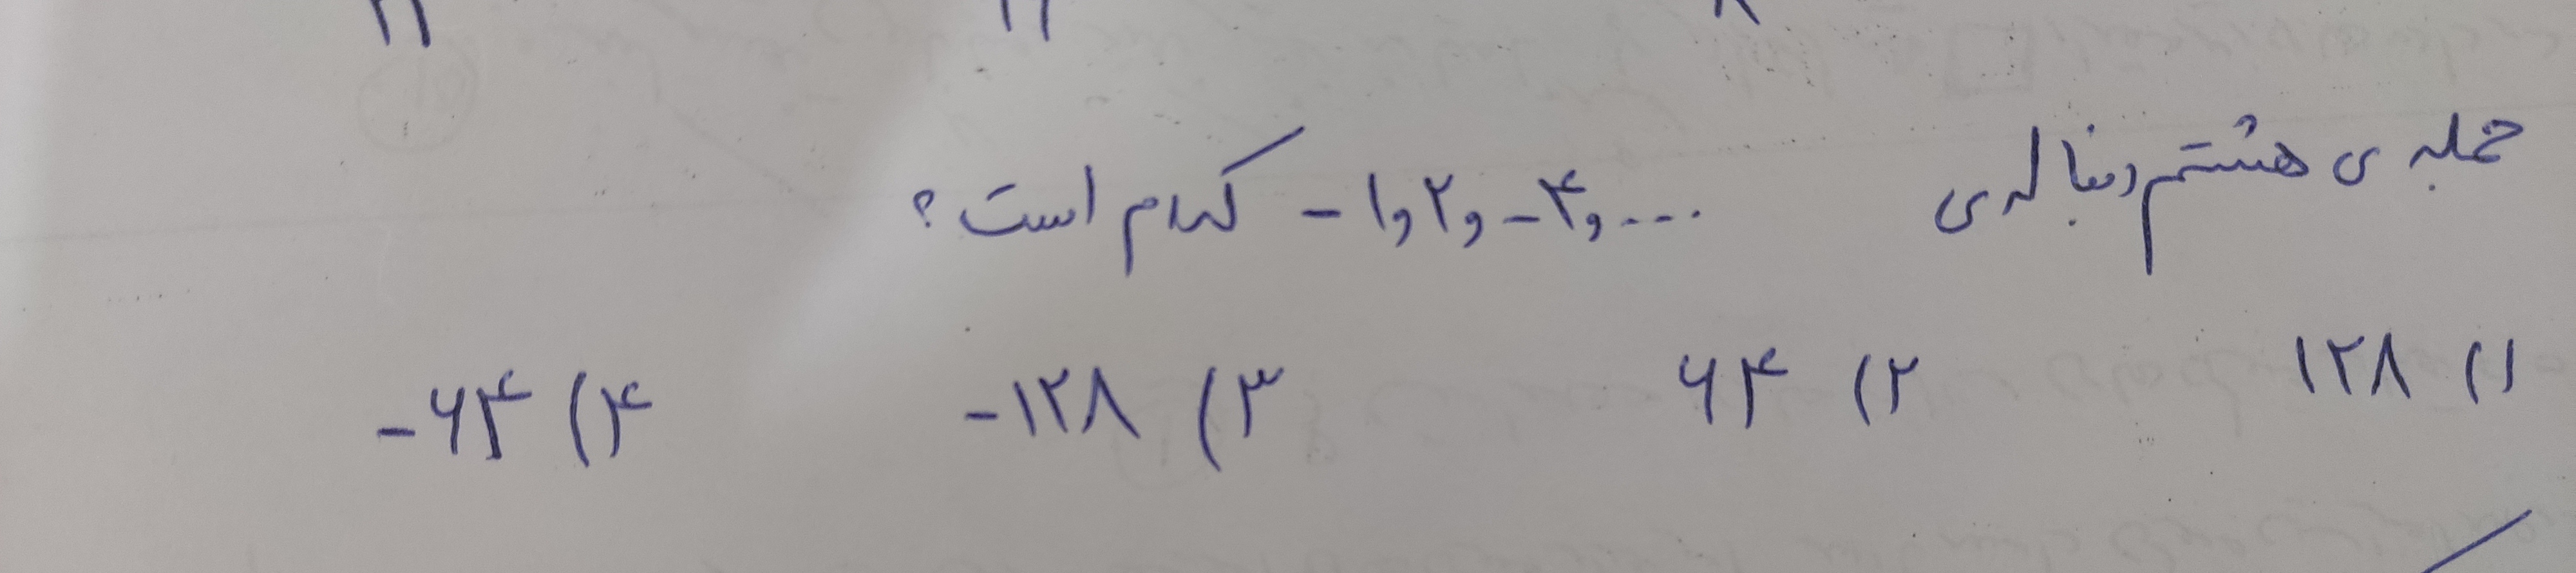 جمله ی هشتم دنباله ی -۱, ۲, -۴, ... کدام است؟
۱) ۱۲۸ ۲) ۶۴ ۳) -۱۲۸ ۴) -۶۴